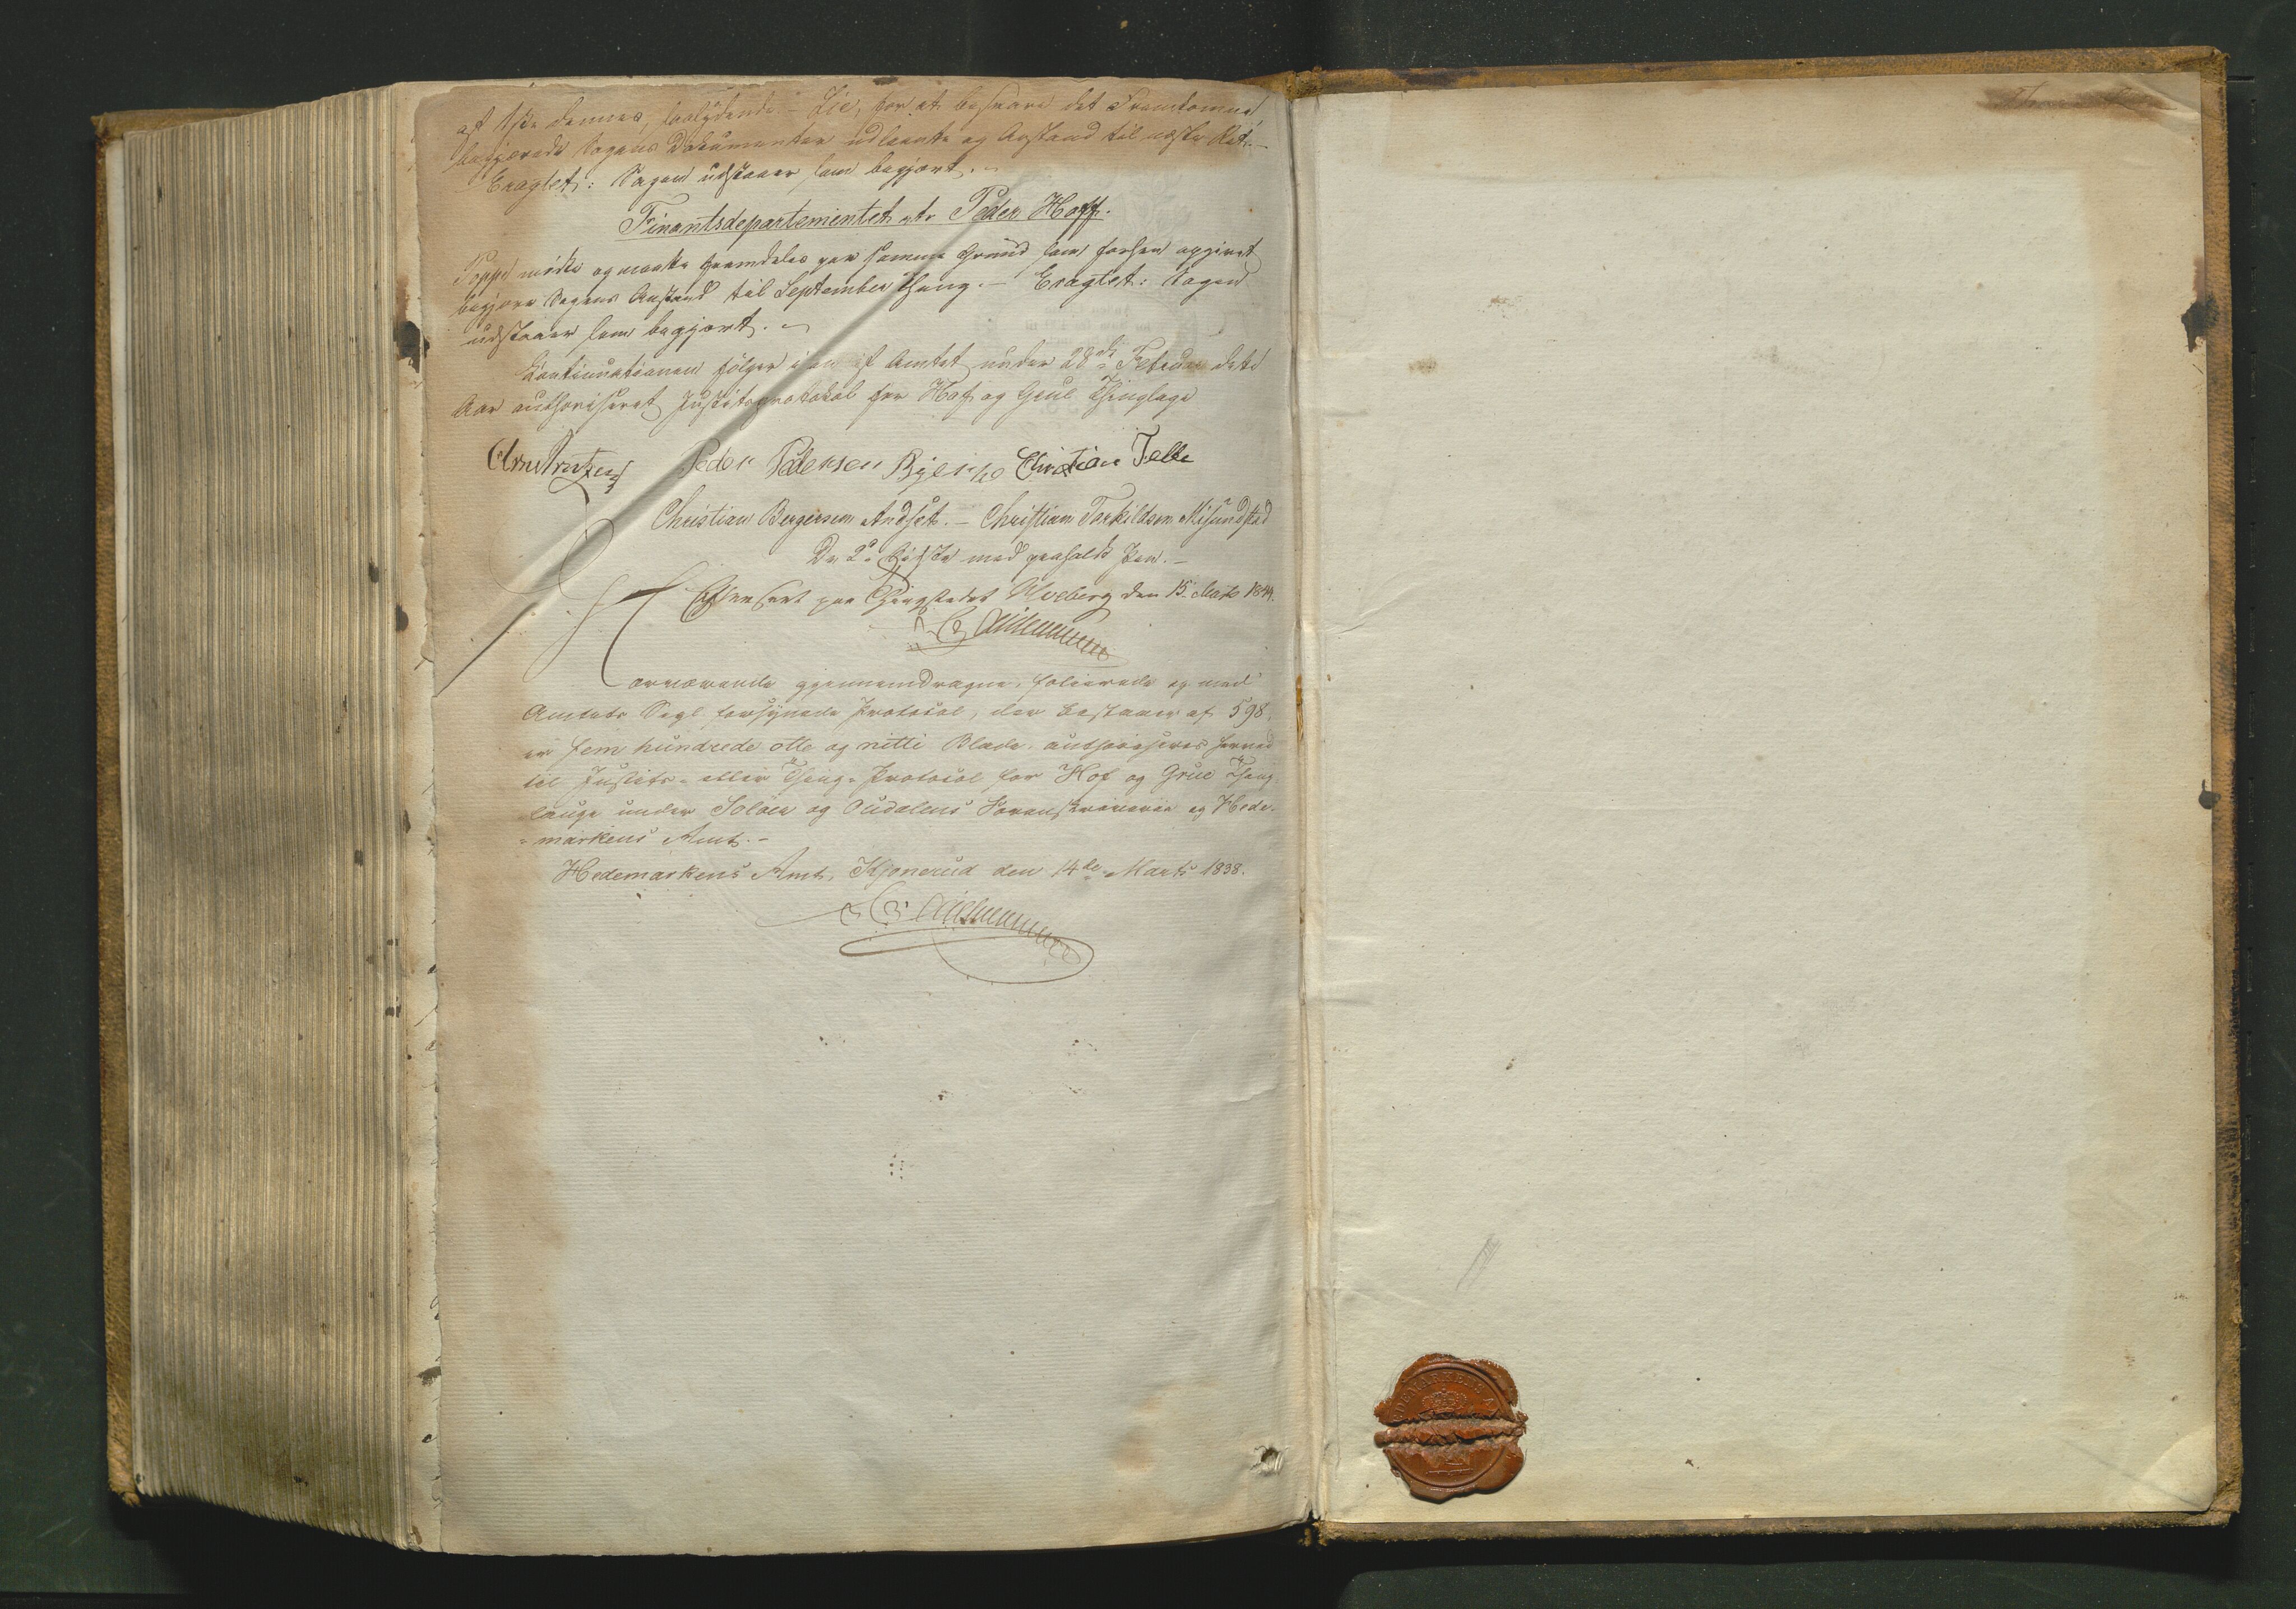 af 1ste dennes, saalydende – Lie, for at besvare det Fremkomne,
begjærede Sagens Dokumenter udlaante og Anstand til næste Ret. –
Eragtet: Sagen udstaaer som begjært. –
Finantsdepartementet ctr Peder Hoff.
mødte og maatte fremdeles paa samme Grund som forhen opgivet
begjære Sagens Anstand til September Thing. – Eragtet: Sagen
udstaaer som begjært. –
Continuationen følger i en af Amtet under 28de Februar dette
Aar authoriseret Justitsprotokol for Hof og Grue Thinglage
Peder Pedersen Christian
Christian Bergersen Andset. – Christian Torkildsen
De 2de sidste med paaholdt Pen. –
Efterseet paa Thingstedet Ulveberg den 15. Marts 1844.
Nærværende gjennemdragne, folierede og med
Amtets Segl forsynede Protocol, der bestaaer af 598,
er fem hundrede otte og nitti Blade, authoriseres herved
til Justits- eller Thing-Protocol for Hof og Grue Thing-
lauge under Soløer og Oudalens Sorenskriverie og Hede-
=markens Amt. –
Hedemarkens Amt, Kjonerud den 14de Marts 1838.